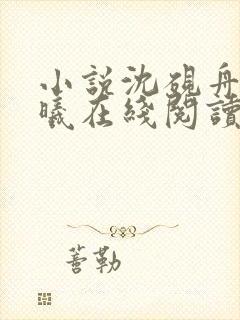 小說沈硯舟
曦在綫閱讀
蓍勒